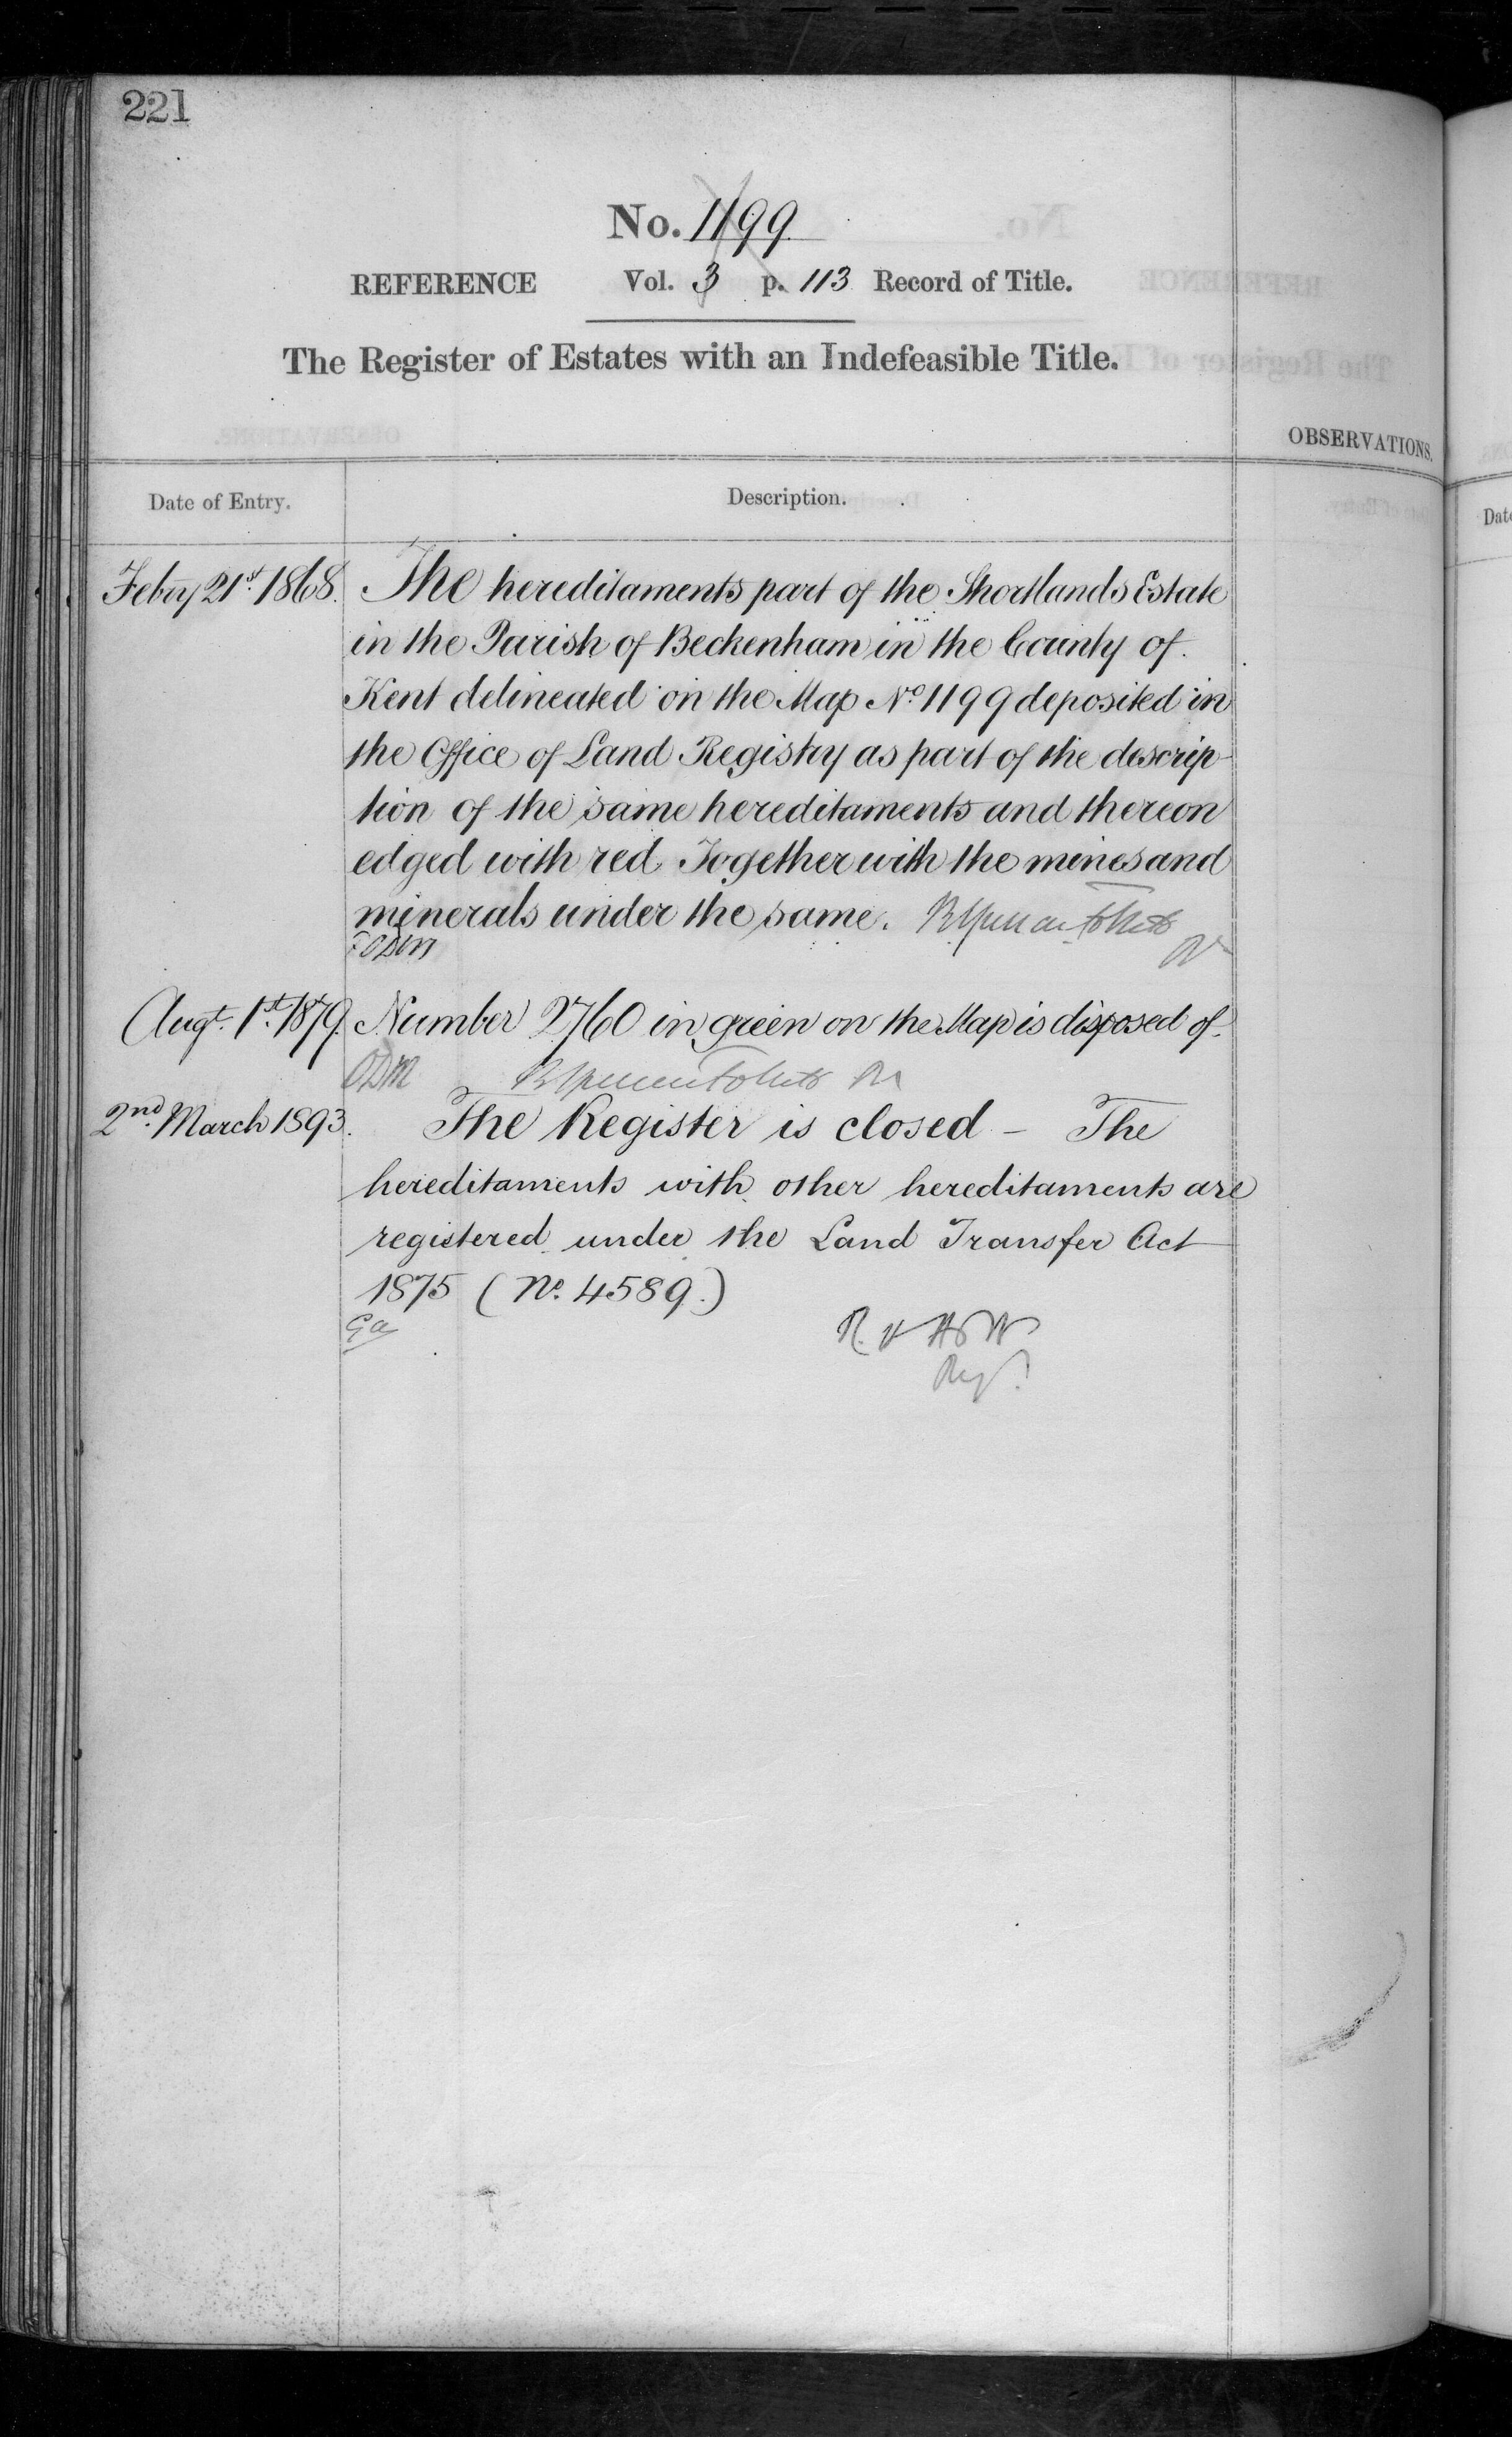 221
No. 1199
REFERENCE Vol. 3 p. 113 Record of Title.
The Register of Estates with an Indefeasible Title.
OBSERVATIONS.
Date of Entry. Description.
Febry 21st. 1868. The hereditaments part of the Shortlands Estate
in the Parish of Beckenham in the County of
Kent delineated on the Map No. 1199 deposited in
the Office of Land Registry as part of the descrip-
tion of the same hereditaments and thereon
edged with red Together with the mines and
minerals under the same.
Augt. 1st. 1879. Number 2760 in green on the Map is disposed of.
ODM
2nd. March 1893. The Register is closed – The
hereditaments with other hereditaments are
registered under the Land Transfer Act
1875 (No. 4589.)
Regr.